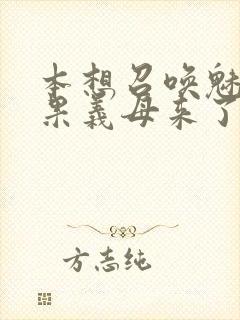 本想召唤魅
果義母来了
方志纯